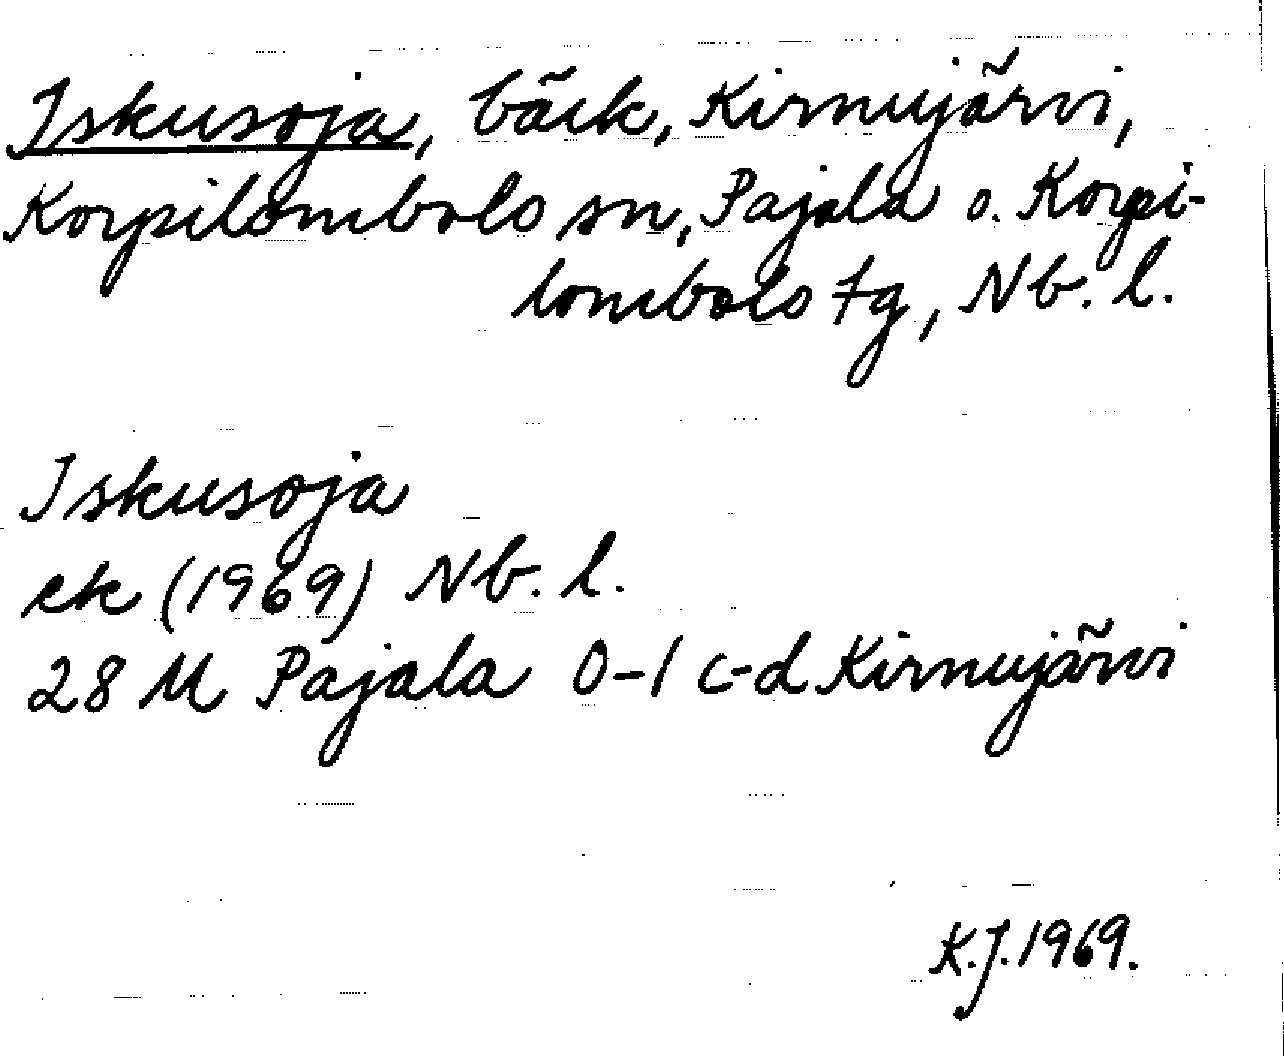 Iskusoja, bäck, Kirnujärvi,
Korpilombolo sn, Pajala o. Korpi-
lombolo tg, Nb. l.
Iskusoja
ek (1969) Nb. l.
28 M Pajala 0-1 c-d Kirnujärvi
K.J. 1969.